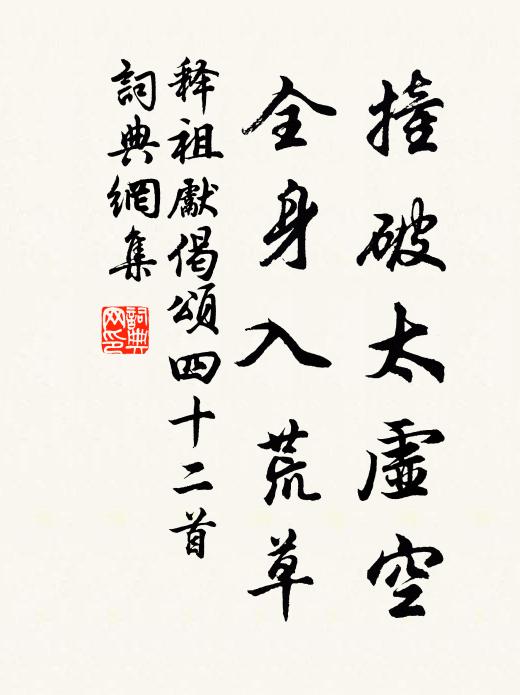 撞破太虛空
全身入荒草
释祖獻偈頌四十二首
詞典網集
詞典网印